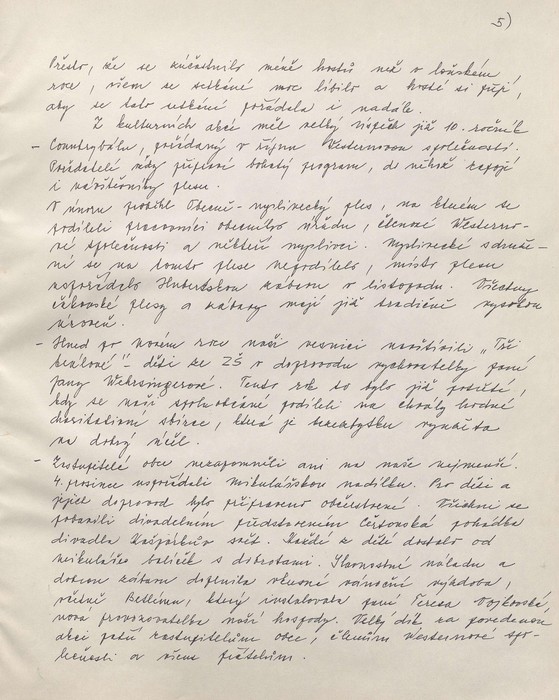 5)
Přesto, že se zúčastnilo méně hostů než v loňském
roce, všem se setkání moc líbilo a hosté si přejí,
aby se tato utkání pořádala i nadále.
Z kulturních akcí měl velký úspěch již 10. ročník
- Countrybálu, pořádaný v říjnu Westernovou společností.
Pořadatelé vždy připraví bohatý program, do něhož zapojí
i návštěvníky plesu.
V únoru proběhl Obecně-myslivecký ples, na kterém se
podíleli pracovníci obecního úřadu, členové Westerno-
vé společnosti a někteří myslivci. Myslivecké sdruže-
ní se na tomto plese nepodílelo, místo plesu
uspořádalo Hubertskou zábavu v listopadu. Všechny
plesy a zábavy mají již tradičně vysokou
úroveň.
- Hned po novém roce naši vesnici navštívili „Tři
králové" - děti ze ZŠ v doprovodu vychovatelky paní
Jany. Tento rok to bylo již potřetí,
kdy se naši spoluobčané podíleli na chvály hodné
charitativní sbírce, která je beze zbytku využita
na dobrý účel.
- Zastupitelé obce nezapomněli ani na naše nejmenší.
4. prosince uspořádali mikulášskou nadílku. Pro děti a
jejich doprovod bylo připraveno občerstvení. Všichni se
pobavili divadelním představením Čertovská pohádka
divadla Kašpárkův svět. Každé z dětí dostalo od
mikuláše balíček s dobrotami. Slavnostní náladu a
dobrou zábavu doplnila vkusná vánoční výzdoba,
včetně Betlému, který instalovala paní Tereza
nová provozovatelka naší hospody. Velký dík za povedenou
akci patří zastupitelům obce, členům Westernové spo-
lečnosti a všem přátelům.